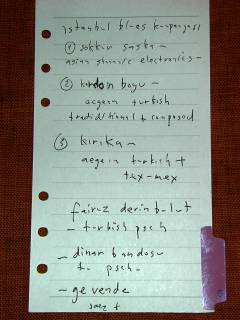 istanbul blues kumpanyasi
① sokkin saska –
asian shamanic electronics –
② kordon boyu –
aegean turkish
traditional + composed
③ kirika –
aegean turkish +
tex-mex
fairuz derin bulut
– turkish psch
– dinar bandosu
tu psch.
– gevende
saez +